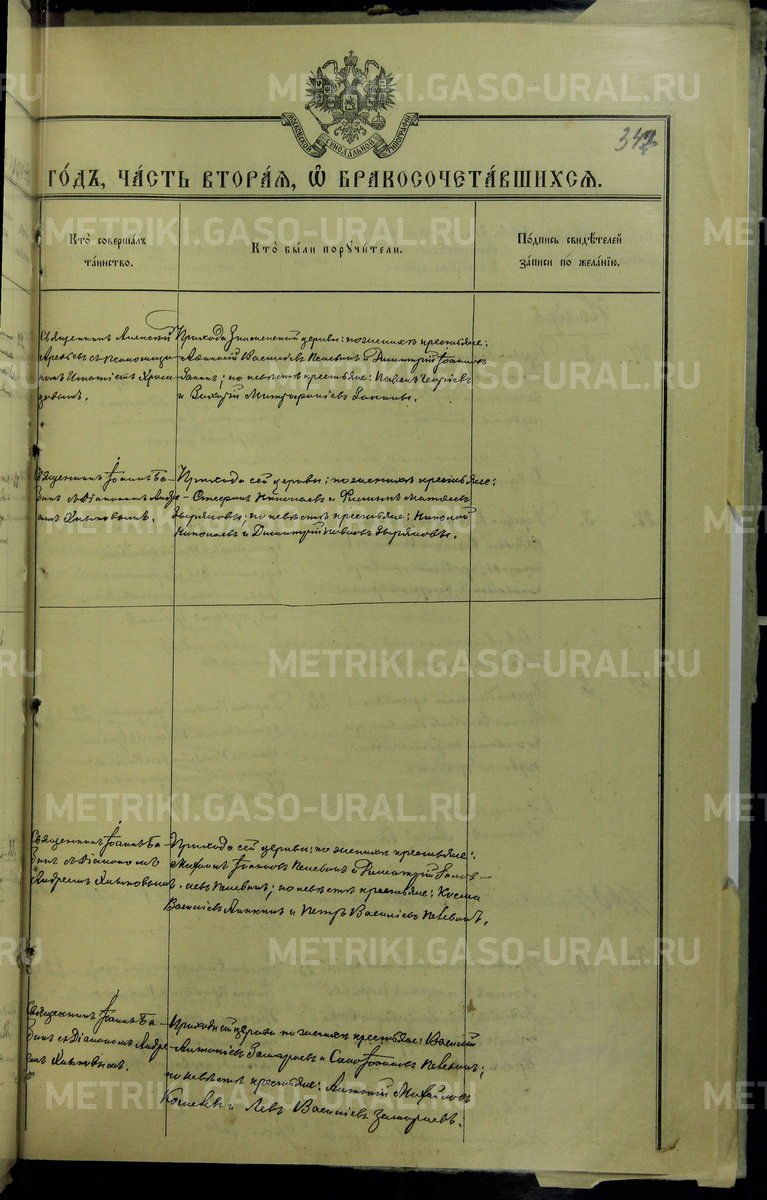 МОСКОВСКОЙ СѴНОДАЛЬНОЙ ТИПОГРАФІИ
347
ГО́ДЪ, ЧА́СТЬ ВТОРА́Я, Ѡ҆ БРАКОСОЧЕТА́ВШИХСЯ.
Кто̀ соверша́лъ
та́инство.
Кто̀ бы́ли порꙋчи́тели.
По́дпись свидѣ́телей
за́писи по жела́нїю.
Священникъ Алексій
съ псаломщи-
комъ
Прихода Знаменской церкви: по женихѣ крестьяне:
Василіевъ Пелевинъ и Димитрій Іоанновъ
; по невѣстѣ крестьяне: Павелъ Георгіевъ
и Захарій Митрофаніевъ
Священникъ Іоаннъ Ба-
бинъ съ Діакономъ Андре-
емъ Хлыновымъ.
Прихода сей церкви: по женихѣ крестьяне:
Стефанъ Николаевъ и Филиппъ Матвѣевъ
Зыряновы, по невѣстѣ крестьяне: Николай
Николаевъ и Димитрій Павловъ Зыряновы.
Священникъ Іоаннъ Ба-
бинъ съ Діакономъ
Андреемъ Хлыновымъ.
Прихода сей церкви: по женихѣ крестьяне:
Михаилъ Іоанновъ Пелевинъ и Димитрій
Пелевинъ; по невѣстѣ крестьяне: Косма
Василіевъ Аникинъ и Петръ Василіевъ Пелевинъ.
Священникъ Іоаннъ Ба-
бинъ съ Діакономъ Андре-
емъ Хлыновымъ.
Прихода сей церкви по женихѣ крестьяне: Василій
Антоніевъ Замараевъ и Іоанновъ Пелевинъ;
по невѣстѣ крестьяне: Антоній Михайловъ
Кошелевъ и Левъ Василіевъ Замараевъ.
METRIKI.GASO-URAL.RU